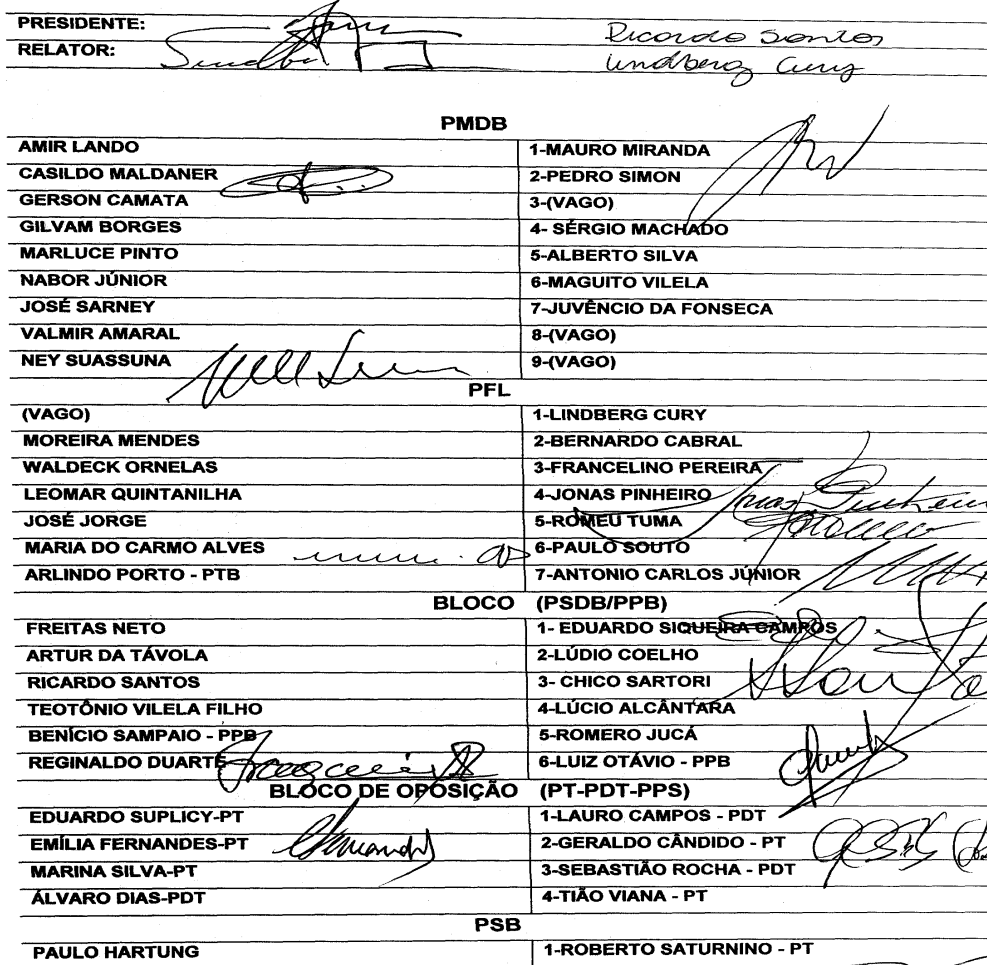 PRESIDENTE: Ricardo Santos
RELATOR: Lindberg Cury
PMDB
AMIR LANDO 1-MAURO MIRANDA
CASILDO MALDANER 2-PEDRO SIMON
GERSON CAMATA 3-(VAGO)
GILVAM BORGES 4- SÉRGIO MACHADO
MARLUCE PINTO 5-ALBERTO SILVA
NABOR JÚNIOR 6-MAGUITO VILELA
JOSÉ SARNEY 7-JUVÊNCIO DA FONSECA
VALMIR AMARAL 8-(VAGO)
NEY SUASSUNA 9-(VAGO)
PFL
(VAGO) 1-LINDBERG CURY
MOREIRA MENDES 2-BERNARDO CABRAL
WALDECK ORNELAS 3-FRANCELINO PEREIRA
LEOMAR QUINTANILHA 4-JONAS PINHEIRO
JOSÉ JORGE 5-ROMEU TUMA
MARIA DO CARMO ALVES 6-PAULO SOUTO
ARLINDO PORTO - PTB 7-ANTONIO CARLOS JÚNIOR
BLOCO (PSDB/PPB)
FREITAS NETO 1- EDUARDO SIQUEIRA CAMPOS
ARTUR DA TÁVOLA 2-LÚDIO COELHO
RICARDO SANTOS 3- CHICO SARTORI
TEOTÔNIO VILELA FILHO 4-LÚCIO ALCÂNTARA
BENÍCIO SAMPAIO - PPB 5-ROMERO JUCÁ
REGINALDO DUARTE 6-LUIZ OTÁVIO - PPB
BLOCO DE OPOSIÇÃO (PT-PDT-PPS)
EDUARDO SUPLICY-PT 1-LAURO CAMPOS - PDT
EMÍLIA FERNANDES-PT 2-GERALDO CÂNDIDO - PT
MARINA SILVA-PT 3-SEBASTIÃO ROCHA - PDT
ÁLVARO DIAS-PDT 4-TIÃO VIANA - PT
PSB
PAULO HARTUNG 1-ROBERTO SATURNINO - PT